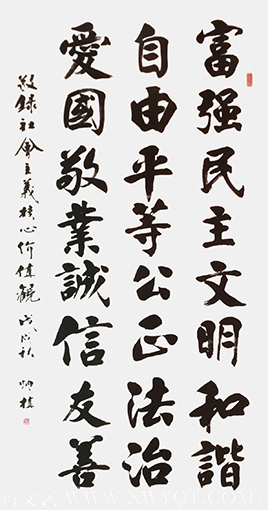 富强民主文明和諧
自由平等公正法治
愛國敬業誠信友善
敬録社會主義核心價值觀 戊戌秋